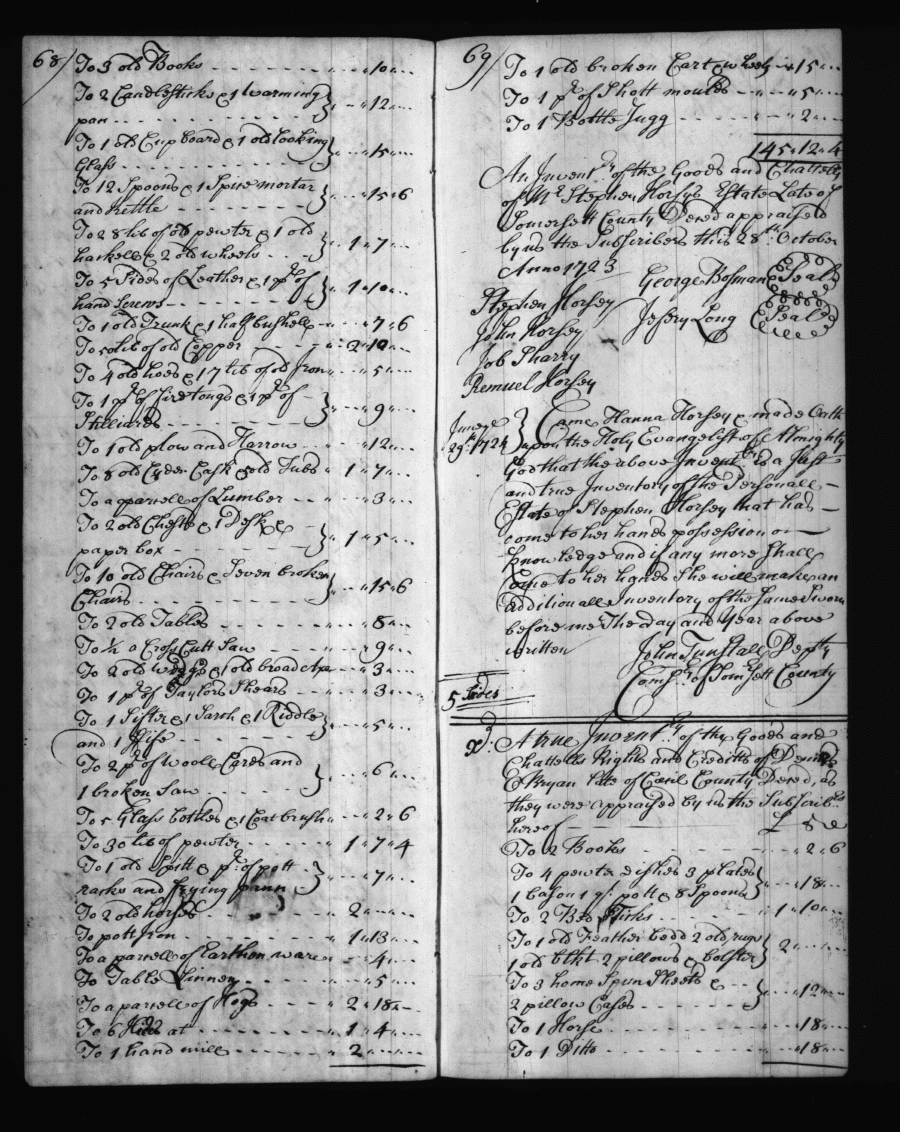 68/
To 5 old Books - - - - " - " 10 " -
To 2 Candlesticks & 1 warming
pan - - - - " - " 12 " -
To 1 old Cupboard & 1 old looking
Glass - - - - " - " 15 " -
To 12 Spoons & 1 Spice mortar
and kettle - - - - " - " 15 " 6
To 28 lib of old pewter & 1 old
& 2 old wheels - - " 1 " 7 " -
To 5 Sides of Leather & 1 pr. of
hand Screws - - - - " 1 " 10 " -
To 1 old Trunk & 1 half bushell - " - " 7 " 6
To 50 lib of old Copper - - - - " 2 " 10 " -
To 4 old hoes & 17 lib of old Iron " - " 5 " -
To 1 pr. of fire tongs & 1 pr. of
Stilliards - - - - " - " 9 " -
To 1 old plow and Harrow - - " - " 12 " -
To 8 old Cyder Cask 5 old Tubs " 1 " 7 " -
To a parcell of Lumber - - " - " 3 " -
To 2 old Chests & 1 Desk &
paper box - - - - " 1 " 5 " -
To 10 old Chairs & Seven broken
Chairs - - - - " - " 15 " 6
To 2 old Tables - - - - " - " 8 " -
To ½ a Cross Cutt Saw - - " - " 9 " -
To 2 old wedges & 1 old broad Axe " - " 3 " -
To 1 pr. of Taylors Shears - - " - " 3 " -
To 1 Sifter & 1 Sarch & 1 Riddle
and 1 - - - - " - " 5 " -
To 2 pr. of wooll Cards and
1 broken Saw - - - - " - " 6 " -
To 5 Glass bottles & 1 Coat brush " - " 2 " 6
To 30 lib of pewter - - - - " 1 " 7 " 4
To 1 old Spitt & pr. of pott
racks and frying pann - - " - " 7 " -
To 2 old horses - - - - " 2 " - " -
To pott Iron - - - - " 1 " 13 " -
To a parcell of Earthen ware - " - " 4 " -
To Table Linnen - - - - " - " 5 " -
To a parcell of Hogs - - " 2 " 18 " -
To 6 Hides at - - - - " 1 " 4 " -
To 1 hand mill - - - - " 2 " - " -
69/
To 1 old broken Cart wheels " - " 15 " -
To 1 pr. of Shott moulds - - " - " 5 " -
To 1 Bottle Jugg - - - - " - " 2 " -
145 " 12 " 4
An Invent.ry of the Goods and Chattells
of Mr. Stephen Horsys Estate Late of
Somersett County Deced appraised
by us the Subscribers this 28th. October
Anno 1723
George Bosman Seal
Stephen Horsey
Jefery Long Seale
John Horsey
Job Sharry
Remuel Horsey
June ye
29th. 1724
Came Hanna Horsey & made Oath
upon the Holy Evangelist of Almighty
God that the above Invent.ry is a Just
and true Inventory of the Personall -
Estate of Stephen Horsey that has -
come to her hands possession or -
knowledge and if any more Shall
Come to her hands She will make an
additionall Inventory of the Same Sworn
before me The day and Year above
written
John Tunstall Depty
Comsr. of Somsett County
5 Sides
Xd. A true Invent.ry of the Goods and
Chattells Rights and Creditts of Dennis
Bryan late of Cecil County Deced, as
they were appraised by us the Subscribrs
hereof - - - - £ S D
To 2 Books - - - - " - " 2 " 6
To 4 pewter dishes 3 plates
1 bason 1 qt. pott & 8 Spoons " - " 18 " -
To 2 Bed Ticks - - - - " 1 " 10 " -
To 1 old Feather bedd 2 old rugs
1 old blkt 2 pillows & bolster " 2 " - " -
To 3 home Spun Sheets &
2 pillow Cases - - - - " - " 12 " -
To 1 Horse - - - - " - " 18 " -
To 1 Ditto - - - - " - " 18 " -